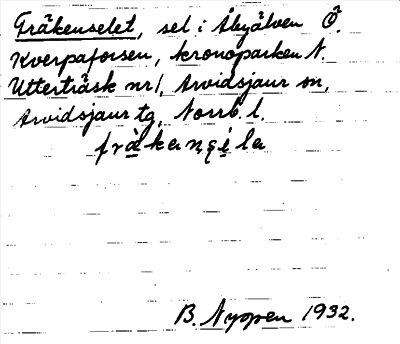 Fräkenselet, sel i Åbyälven Ö.
Kverpaforsen, kronoparken N.
Utterträsk nr 1, Arvidsjaur sn,
Arvidsjaur tg, Norrb. l.
B. Nyppen 1932.